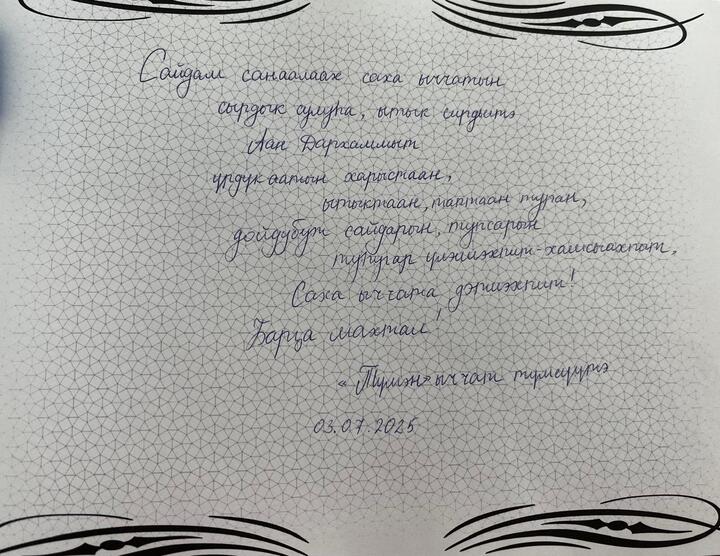 Сайдам санаалаах саха ыччатын
сырдык сулуһа, ытык сирдьитэ
Аан Дархаммыт
үрдүк аатын харыстаан,
ытыктаан, таптаан туран,
дойдубут сайдарын, тупсарын
туһугар үлэлиэхпит-хамсыахпыт.
Саха ыччата дэтиэхпит!
Барҕа махтал!
«Түмэн» ыччат түмсүүтэ
03.07.2025